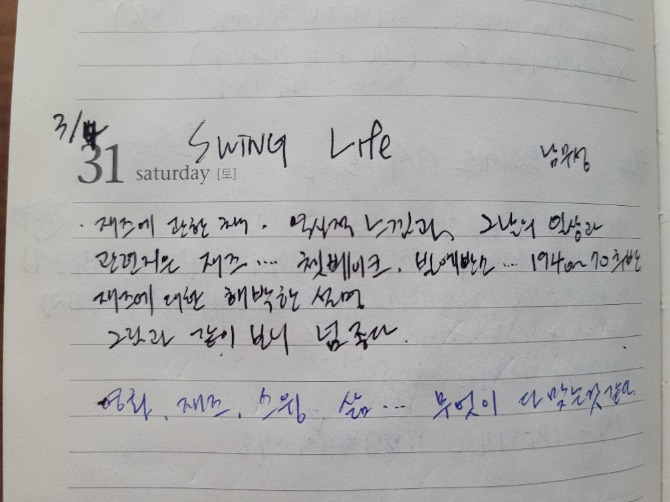 3/4
SWING Life
남무성
31 saturday [토]
· 재즈에 관한 책. 역사적 느낌과, 그날의 일상과
관련지은 재즈 .... 쳇베이크. 빌에반스... 1940~70 후반
재즈에 대한 해박한 설명
그림과 같이 보니 넘 좋다.
영화, 재즈, 스윙, 삶... 무엇이 다 맞는것 같다.